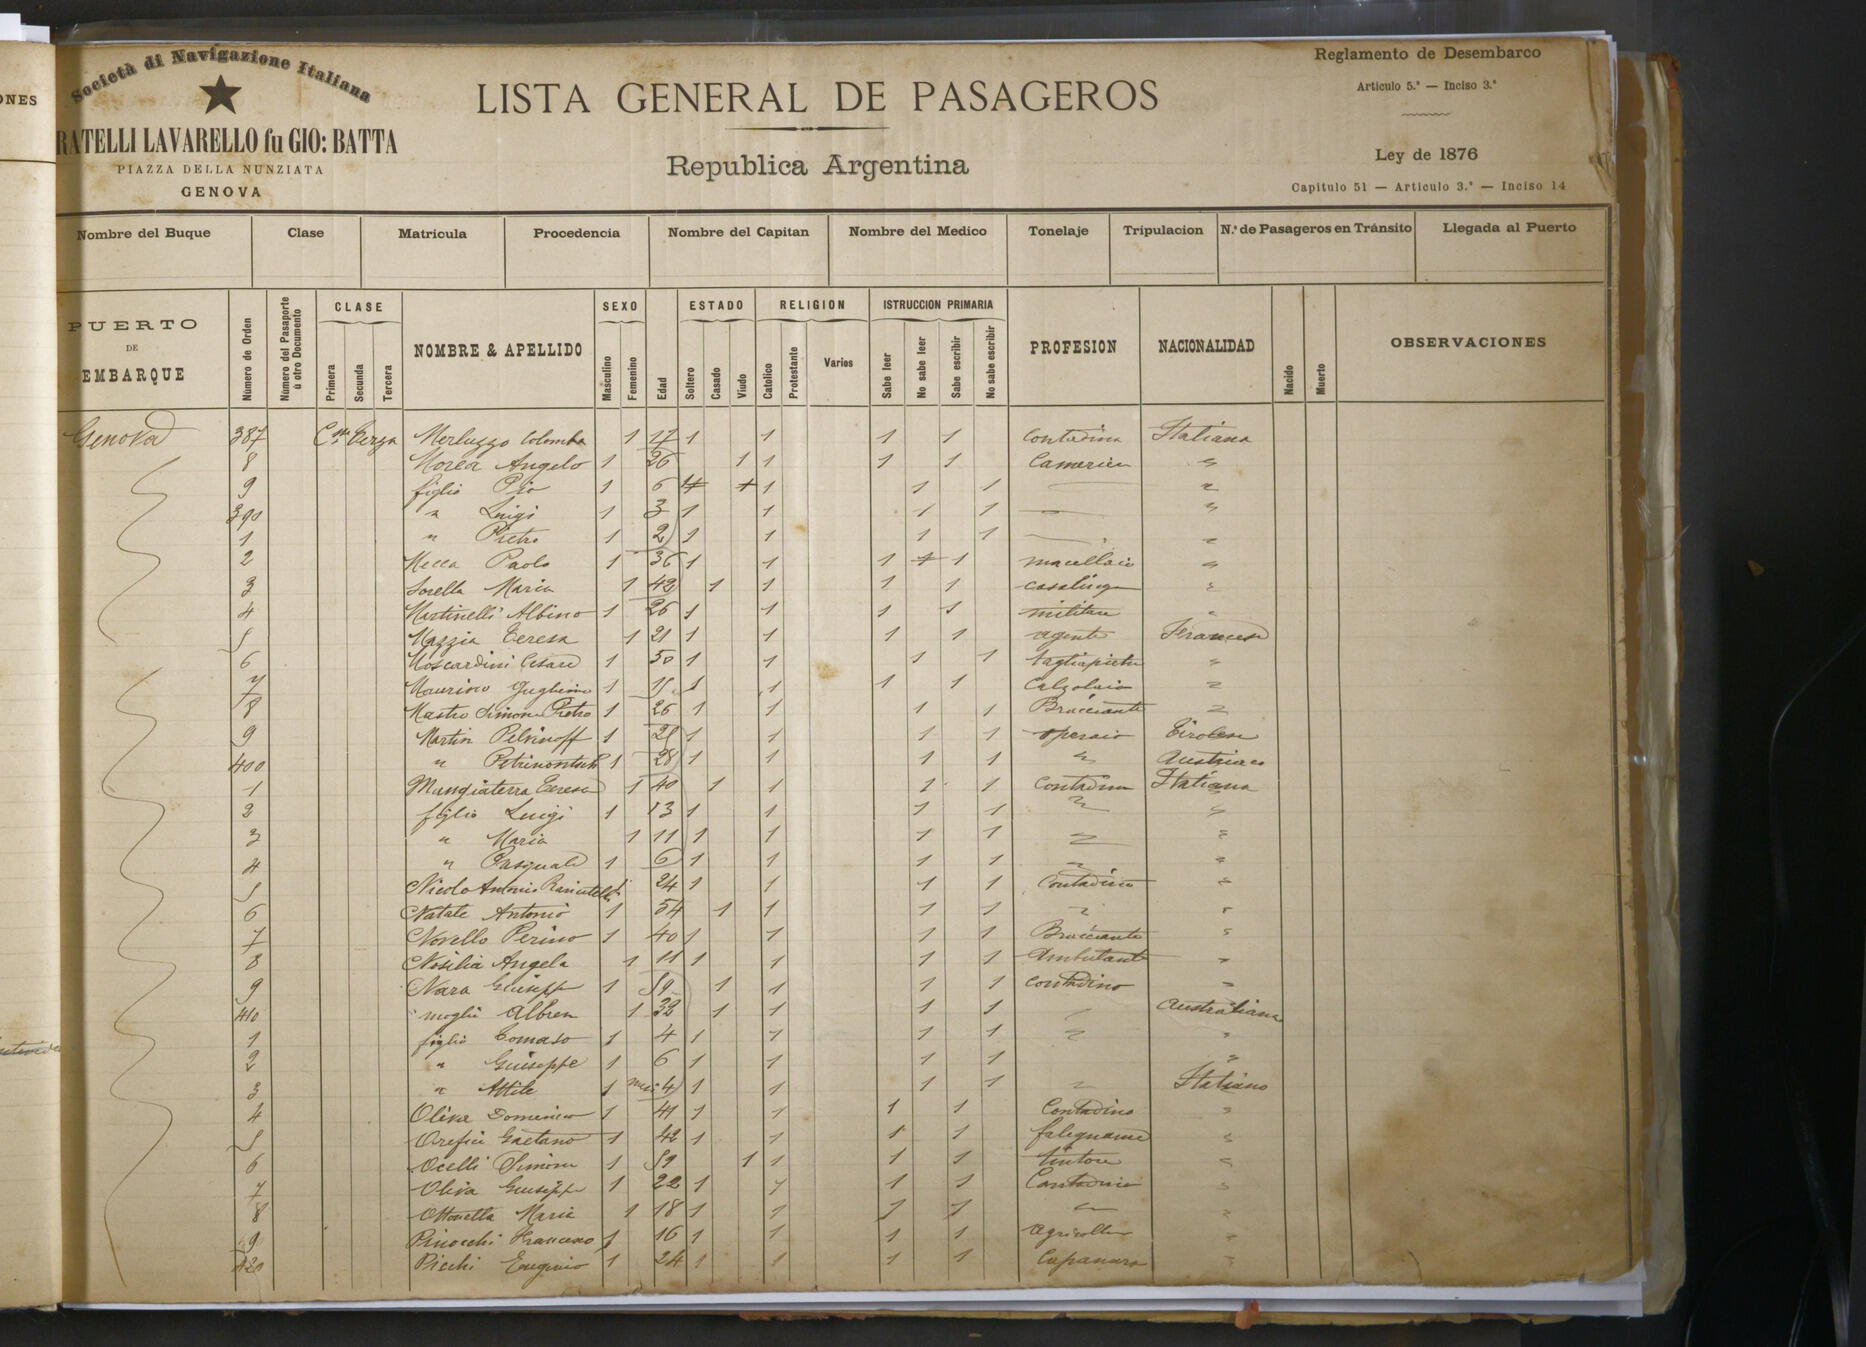 ONES
Società di Navigazione Italiana
RATELLI LAVARELLO fu GIO: BATTA
PIAZZA DELLA NUNZIATA
GENOVA
LISTA GENERAL DE PASAGEROS
Republica Argentina
Reglamento de Desembarco
Articulo 5.º — Inciso 3.º
Ley de 1876
Capitulo 51 — Articulo 3.º — Inciso 14
Nombre del Buque Clase Matricula Procedencia Nombre del Capitan Nombre del Medico Tonelaje Tripulacion N.º de Pasageros en Tránsito Llegada al Puerto
PUERTO DE EMBARQUE Número de Orden Número del Pasaporte ú otro Documento CLASE Primera Secunda Tercera NOMBRE & APELLIDO SEXO Masculino Femenino Edad ESTADO Soltero Casado Viudo RELIGION Catolico Protestante Varios ISTRUCCION PRIMARIA Sabe leer No sabe leer Sabe escribir No sabe escribir PROFESION NACIONALIDAD Nacido Muerto OBSERVACIONES
Genova 387 Terza Merluzzo Colomba 1 17 1 1 1 1 Contadina Italiana
8 Morea Angelo 1 26 1 1 1 1 Camerier "
9 figlio Pio 1 6 1 1 1 1 "
390 " Luigi 1 3 1 1 1 1 "
1 " Pietro 1 2 1 1 1 1 "
2 Mecca Paolo 1 36 1 1 1 1 1 macellaio "
3 Sorella Maria 1 42 1 1 1 1 casalinga "
4 Martinelli Albino 1 26 1 1 1 1 militare "
5 Mazzia Teresa 1 21 1 1 1 1 agente Francese
6 Moscardini Cesare 1 50 1 1 1 1 tagliapietre "
7 Maurino Guglielmo 1 1 1 1 1 Calzolaio "
8 Mastro Simone Pietro 1 26 1 1 1 1 Bracciante "
9 Martin 1 1 1 1 1 operaio Tirolese
400 " 1 28 1 1 1 1 " Austriaco
1 Mangiaterra Teresa 1 40 1 1 1 1 Contadina Italiana
2 figlio Luigi 1 13 1 1 1 1 " "
3 " Maria 1 11 1 1 1 1 " "
4 " Pasquale 1 6 1 1 1 1 " "
5 Nicola Antonio 1 24 1 1 1 1 Contadino "
6 Natale Antonio 1 54 1 1 1 1 " "
7 Novello Perino 1 40 1 1 1 1 Bracciante "
8 Nosilia Angela 1 11 1 1 1 1 Ambulante "
9 Nara Giuseppe 1 59 1 1 1 1 Contadino "
410 moglie 1 32 1 1 1 1 " Australiana
1 figlio Tomaso 1 4 1 1 1 1 " "
2 " Giuseppe 1 6 1 1 1 1 "
3 " Attile 1 mesi 4 1 1 1 1 " Italiano
4 Oliva Domenico 1 41 1 1 1 1 Contadino "
5 Orefici Gaetano 1 42 1 1 1 1 falegname "
6 Ocelli Simone 1 59 1 1 1 1 tintore "
7 Oliva Giuseppe 1 22 1 1 1 1 Contadino "
8 Ottonella Maria 1 18 1 1 1 1 " "
9 Pinocchi Francesco 1 16 1 1 1 1 agricoltore "
420 Picchi Eugenio 1 24 1 1 1 1 "